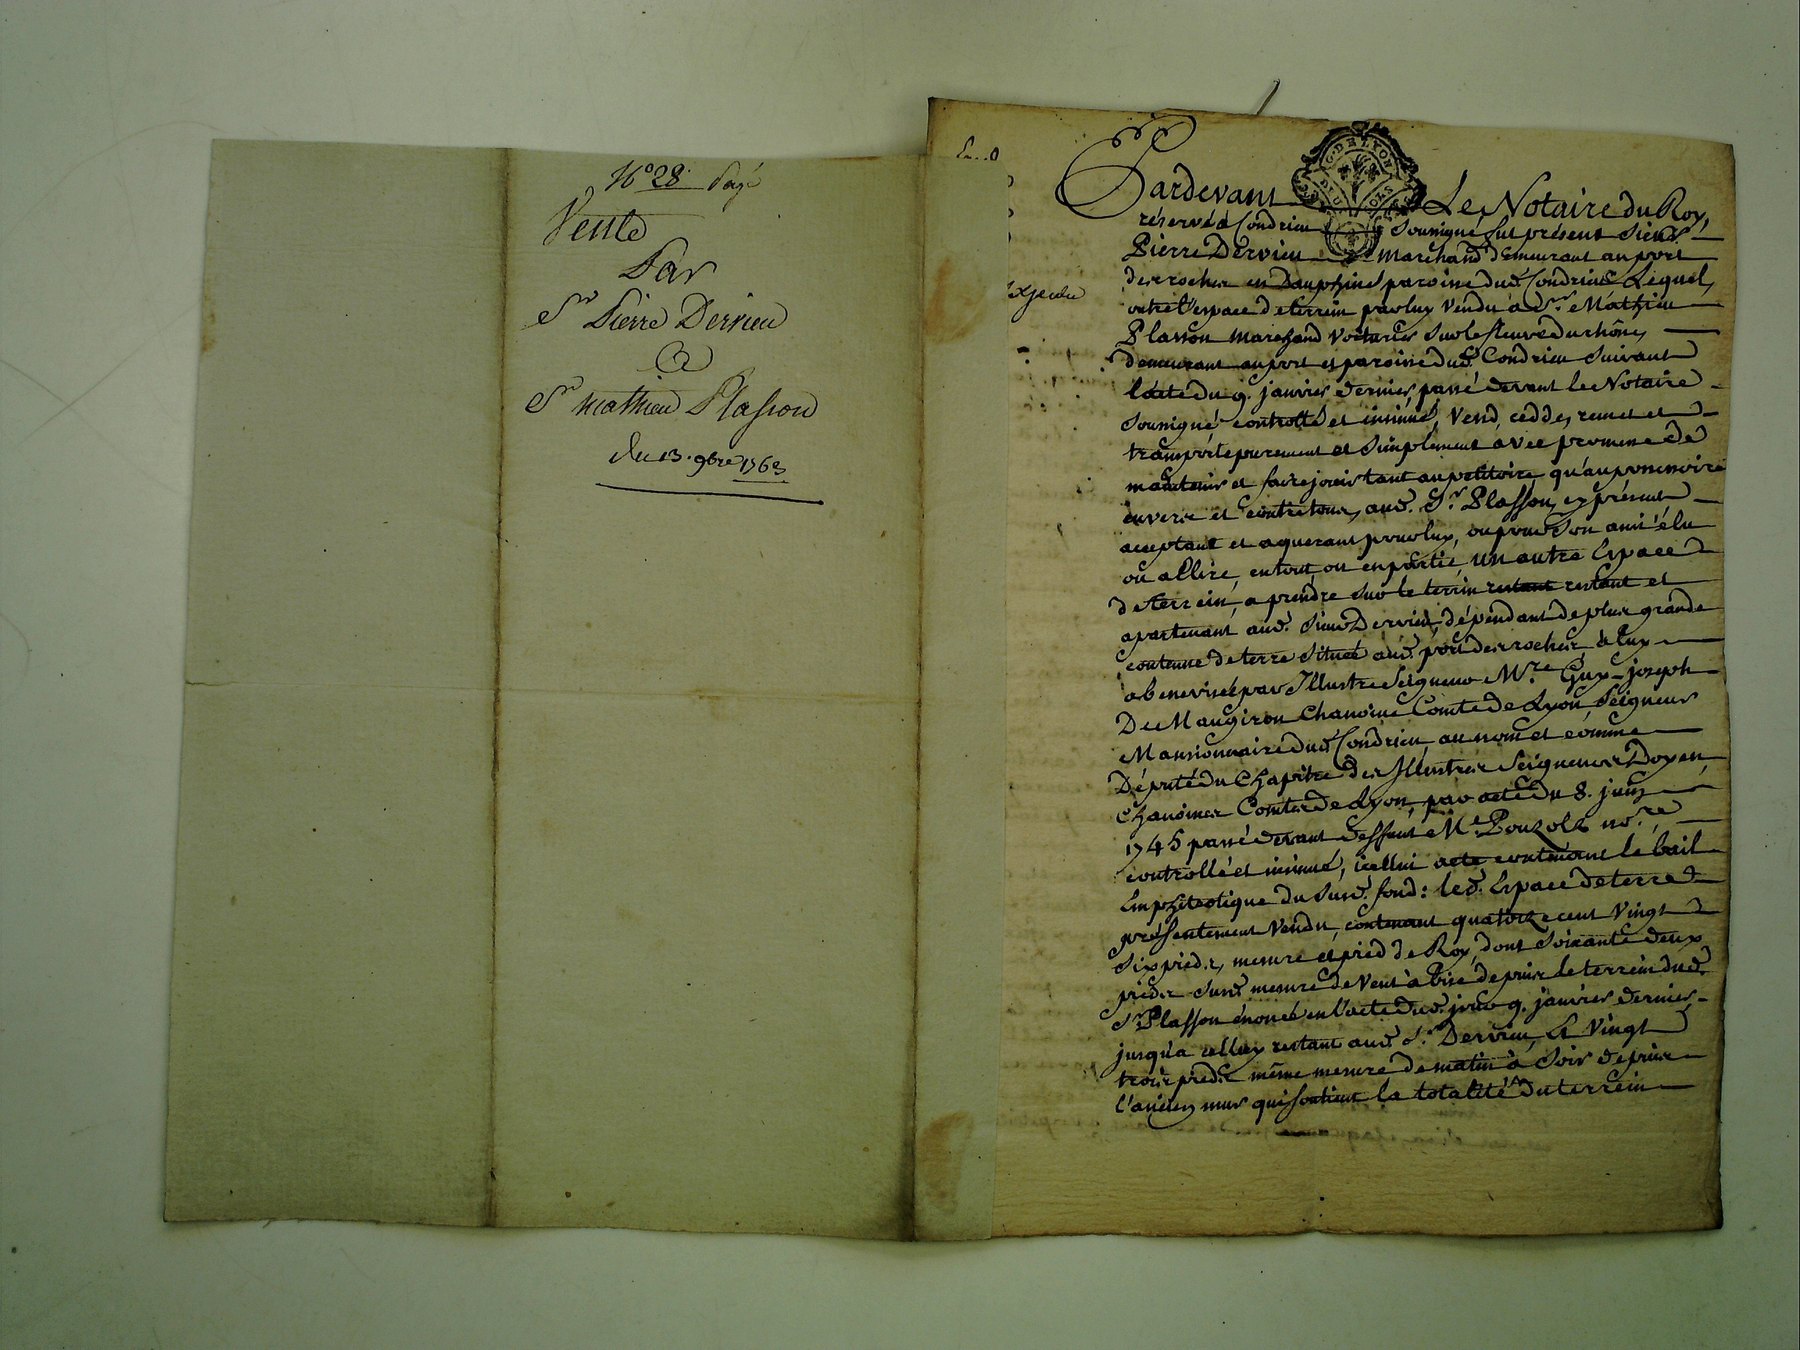 N° 28. Payé
Vente
Par
Sr Pierre Dervieu
A
Sr mathieu Plasson
du 13. 9bre 1763
G. DE LYON
Pardevant Le Notaire du Roy,
réservé à Condrieu Soussigné fut présent Sieur
Pierre Dervieu marchand demeurant au port
des rocher en Dauphiné paroisse dud. Condrieu Lequel,
outre l'espace de terrein par luy vendu à Sr. Mathieu
Plasson marchand voiturier sur le fleuve du rhône,
demeurant au port et paroisse dud. Condrieu suivant
l'acte du 9. janvier dernier, passé devant le Notaire
soussigné controllé et insinué, Vend, cedde, remet et
transporte purement et simplement avec promesse de
maintenir et faire jouir tant au petitoire qu'au possessoire
envers et contre tous, aud. Sr. Plasson, cy présent
aceptant et aquerant pour luy, ou pour son ami élu
ou a Elire, en tout, ou en partie, un autre Espace
de terrein, a prendre sur le terrin restant restant et
apartenant aud. Sieur Dervieu, dépendant de plus grande
contenue de terre située aud. port des rocher, à luy
abenevisée par Illustre Seigneur Mre. Guy-joseph
De Maugiron Chanoine Comte de Lyon, Seigneur
Mansionnaire dud. Condrieu, au nom et comme
Député du Chapitre des Illustres Seigneurs Doyen,
Chanoines Comtes de Lyon, par acte du 8. juin
1745 passé devant deffunt Me. Pouzols nore.,
controllé et insinué, icellui acte contenant le bail
Emphiteotique du susd. fond: led. Espace de terre
présentement vendu, contenant quatorze cent vingt
six pieds, mesure et pied de Roy, dont soixante deux
pieds susd. mesure de vent à bise depuis le terrein dud.
Sr. Plasson énoncé en l'acte dud. jour 9. janvier dernier,
jusqu'a celluy restant aud. Sr. Dervieu, Et vingt
trois pieds même mesure de matin à soir depuis
l'ancien mur qui soutient la totalité du terrein